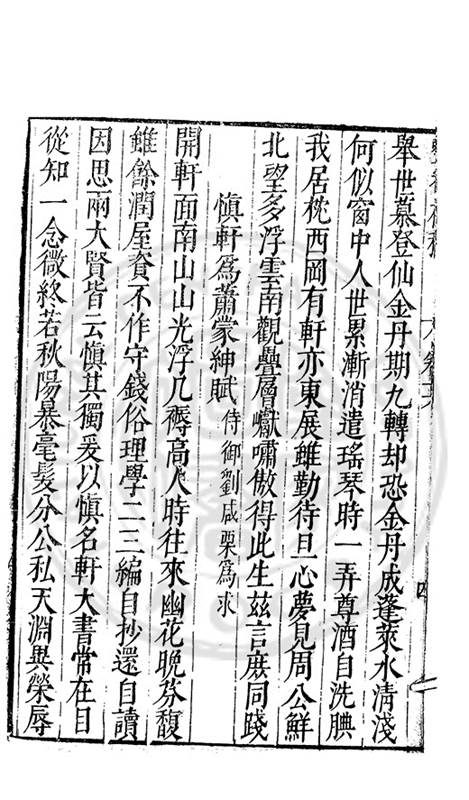 舉世慕登仙金丹期九轉却恐金丹成蓬萊水清淺
何似窗中人世累漸消遣瑤琴時一弄尊酒自洗腆
我居枕西岡有軒亦東展雖勤待旦心夢見周公鮮
北望多浮雲南觀疊層巘嘯傲得此生茲言庶同踐
慎軒爲蕭蒙紳賦侍御劉咸栗爲求
開軒面南山山光浮几褥高人時往來幽花晚芬馥
雖餘潤屋資不作守錢俗理學二三編自抄還自讀
因思兩大賢皆云慎其獨爰以慎名軒大書常在目
從知一念微終若秋陽暴毫髮分公私天淵與榮辱
四